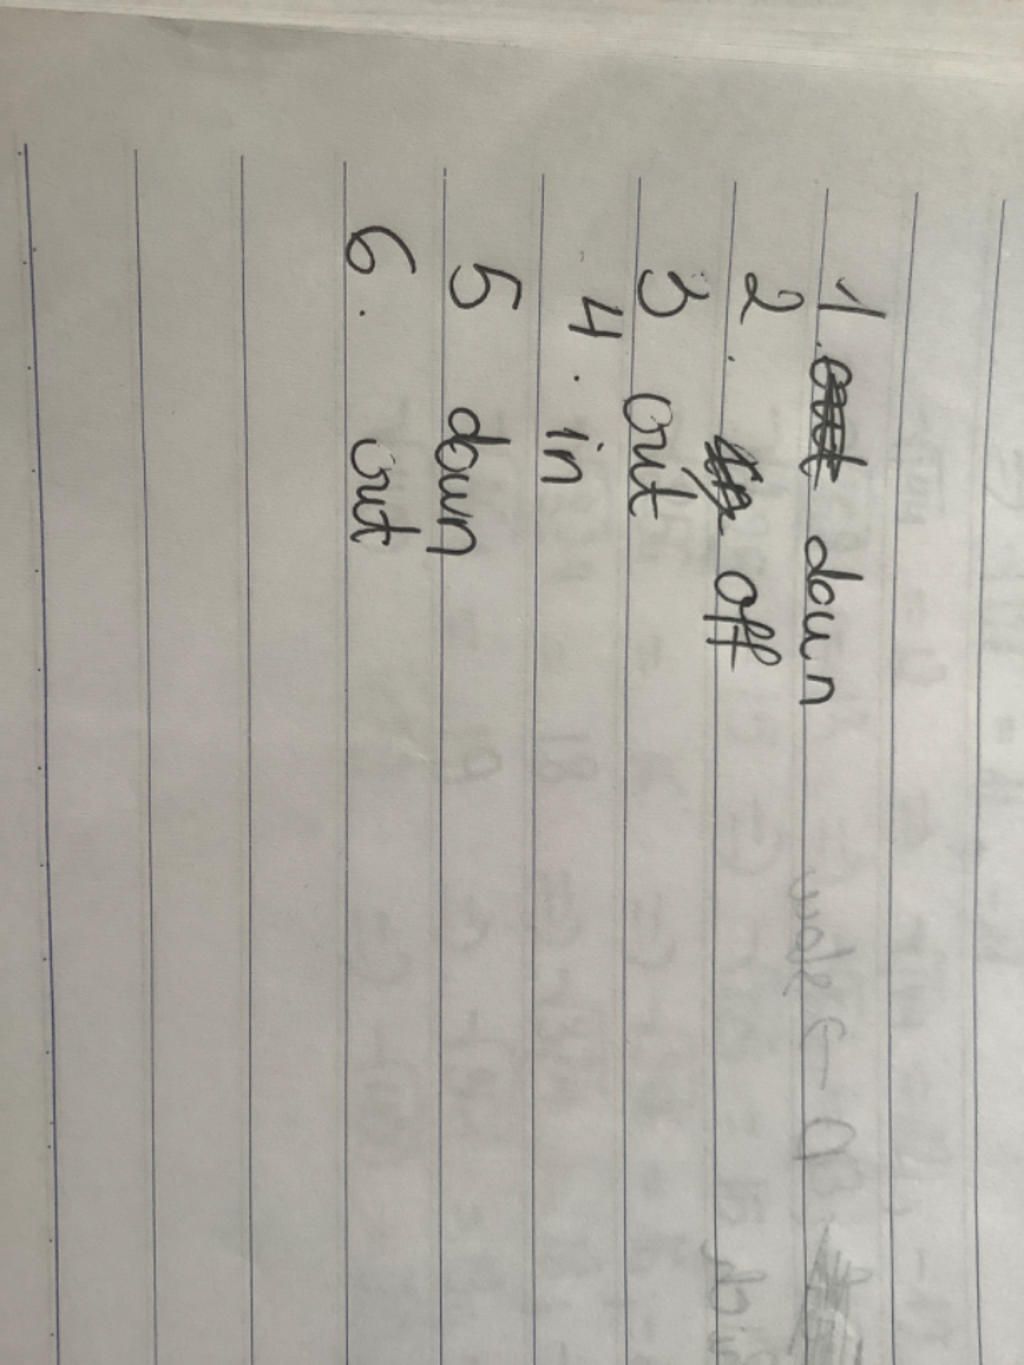 1. out down
2. in off
3 out
4. in
5 down
6. out